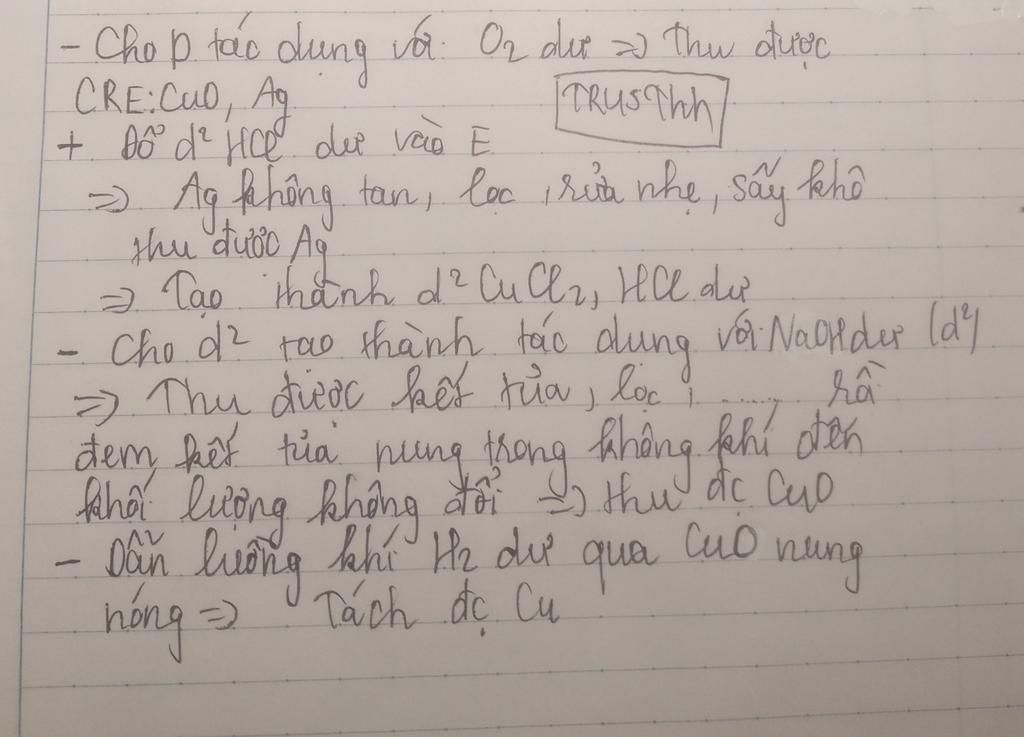 - Cho D tác dụng với O2 dư => Thu được
CRE: CuO, Ag
TRUSThh
+ Đổ d² HCl dư vào E
=> Ag không tan, lọc, rửa nhẹ, sấy khô
thu được Ag
=> Tạo thành d² CuCl2, HCl dư
- Cho d² tao thành tác dung với NaOH dư (d²)
=> Thu được kết tủa, lọc, ...... rồ
đem kết tủa nung trong không khí đến
khối lượng không đổi => thu đc CuO
- Dẫn luồng khí H2 dư qua CuO nung
nóng => Tách đc Cu